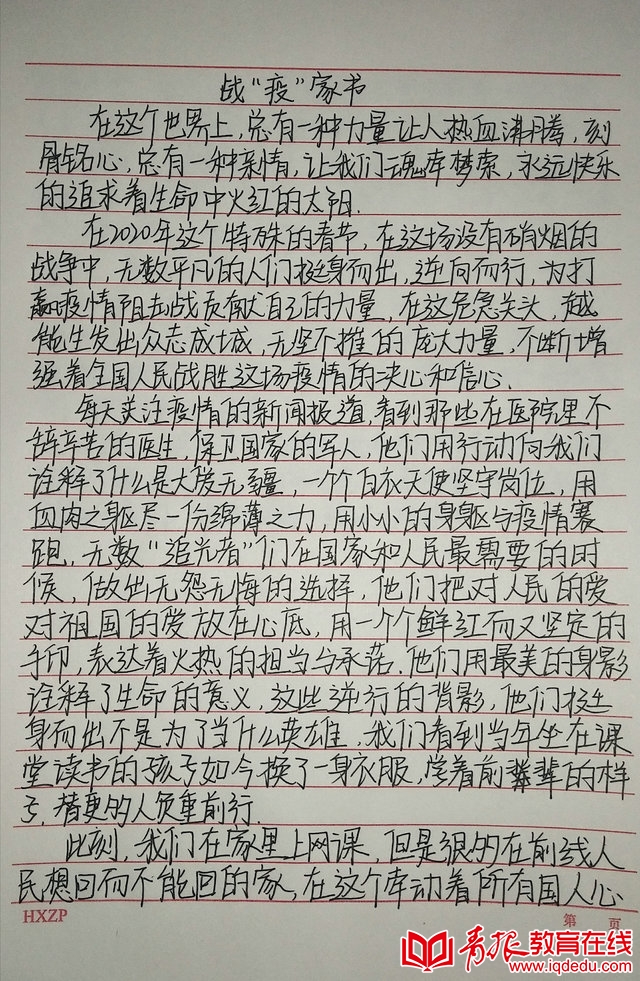 战“疫”家书
在这个世界上，总有一种力量让人热血沸腾，刻
骨铭心，总有一种亲情，让我们魂牵梦萦，永远快乐
的追求着生命中火红的太阳.
在2020年这个特殊的春节，在这场没有硝烟的
战争中，无数平凡的人们挺身而出，逆向而行，为打
赢疫情阻击战贡献自己的力量，在这危急关头，越
能生发出众志成城，无坚不摧的庞大力量，不断增
强着全国人民战胜这场疫情的决心和信心.
每天关注疫情的新闻报道，看到那些在医院里不
辞辛苦的医生，保卫国家的军人，他们用行动向我们
诠释了什么是大爱无疆，一个个白衣天使坚守岗位，用
血肉之躯尽一份绵薄之力，用小小的身躯与疫情赛
跑，无数“追光者”们在国家和人民最需要的时
候，做出无怨无悔的选择，他们把对人民的爱
对祖国的爱放在心底，用一个个鲜红而又坚定的
手印，表达着火热的担当与承诺.他们用最美的身影
诠释了生命的意义，这些逆行的背影，他们挺
身而出不是为了当什么英雄，我们看到当年坐在课
堂读书的孩子如今换了一身衣服，学着前辈的样
子，替更的人负重前行.
此刻，我们在家里上网课，但是很多在前线人
民想回而不能回的家，在这个牵动着所有国人心
HXZP
第 页
青报教育在线
www.iqdedu.com